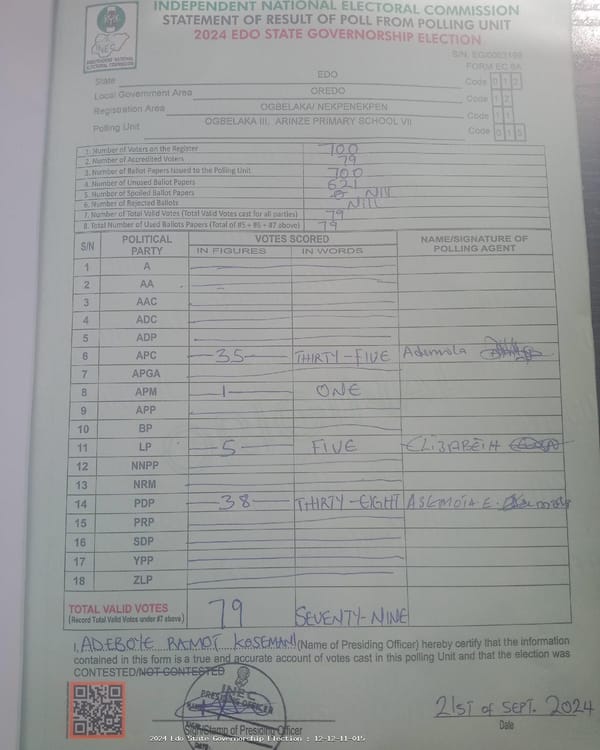 INDEPENDENT NATIONAL ELECTORAL COMMISSION
STATEMENT OF RESULT OF POLL FROM POLLING UNIT
2024 EDO STATE GOVERNORSHIP ELECTION
INEC
INDEPENDENT NATIONAL
ELECTORAL COMMISSION
FORM EC 8A
State EDO Code 0 1 2
Local Government Area OREDO Code 1 2
Registration Area OGBELAKA/ NEKPENEKPEN Code 1 1
Polling Unit OGBELAKA III, ARINZE PRIMARY SCHOOL VII Code 0 1 5
1. Number of Voters on the Register 700
2. Number of Accredited Voters 79
3. Number of Ballot Papers Issued to the Polling Unit 700
4. Number of Unused Ballot Papers 621
5. Number of Spoiled Ballot Papers NILL
6. Number of Rejected Ballots NILL
7. Number of Total Valid Votes (Total Valid Votes cast for all parties) 79
8. Total Number of Used Ballots Papers (Total of #5 + #6 + #7 above) 79
S/N POLITICAL PARTY VOTES SCORED NAME/SIGNATURE OF POLLING AGENT
IN FIGURES IN WORDS
1 A
2 AA
3 AAC
4 ADC
5 ADP
6 APC 35 THIRTY-FIVE Ademola
7 APGA
8 APM 1 ONE
9 APP
10 BP
11 LP 5 FIVE ELIZABETH
12 NNPP
13 NRM
14 PDP 38 THIRTY-EIGHT ASEMOTA E.
15 PRP
16 SDP
17 YPP
18 ZLP
TOTAL VALID VOTES 79 SEVENTY-NINE
(Record Total Valid Votes under #7 above)
I, ADEBOYE RAMOT KOSEMANI (Name of Presiding Officer) hereby certify that the information
contained in this form is a true and accurate account of votes cast in this polling Unit and that the election was
CONTESTED/NOT CONTESTED
INEC
PRESIDING OFFICER
21ST OF SEPT. 2024
Sign/Stamp of Presiding Officer Date
2024 Edo State Governorship Election : 12-12-11-015